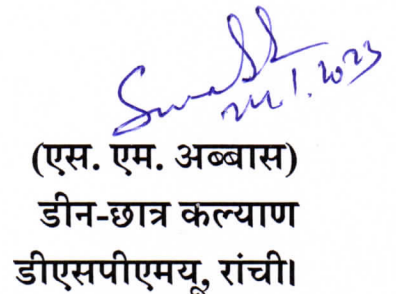 24.1.2023
(एस. एम. अब्बास)
डीन-छात्र कल्याण
डीएसपीएमयू, रांची।